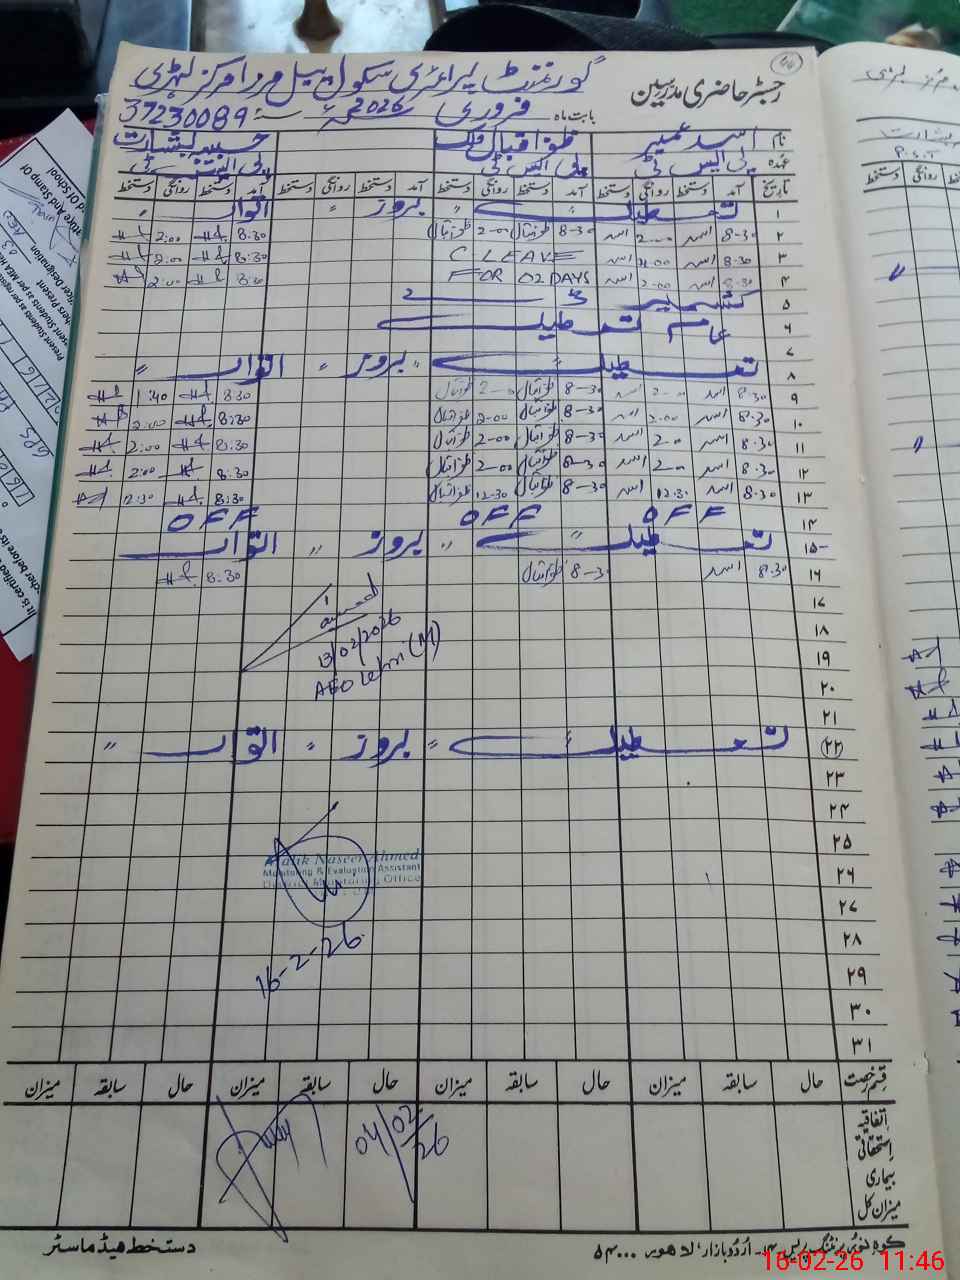 رجسٹر حاضری مدرسین گورنمنٹ پرائمری سکول پیل مرزا مرکز لہڑی
بابت ماہ فروری 2026 37230089
نام اسد عمیر ظفر اقبال ملک حسیب بشارت
عہدہ پی ایس ٹی پی ایس ٹی
تاریخ آمد دستخط روانگی دستخط آمد دستخط روانگی دستخط آمد دستخط روانگی دستخط آمد دستخط روانگی دستخط
۱ تعطیل " بروز " اتوار "
۲ 8-30 اسد 2-00 اسد 8-30 ظفر اقبال 2-00 ظفر اقبال 8:30 2:00
۳ 8-30 اسد 2-00 اسد C LEAVE 8:30 2:00
۴ 8:30 اسد 2-00 اسد FOR 02 DAYS 8:30 2:00
۵ کشمیر ڈے
۶ عام تعطیل
۷
۸ تعطیل " بروز " اتوار "
۹ 8:30 اسد 2-00 اسد 8-30 ظفر اقبال 2-00 ظفر اقبال 8:30 1:40
۱۰ 8:30 اسد 2.00 اسد 8-30 ظفر اقبال 2-00 ظفر اقبال 8:30 2:00
۱۱ 8:30 اسد 2-00 اسد 8-30 ظفر اقبال 2-00 ظفر اقبال 8:30 2:00
۱۲ 8:30 اسد 2-00 اسد 8-30 ظفر اقبال 2-00 ظفر اقبال 8:30 2:00
۱۳ 8:30 اسد 12:30 اسد 8-30 ظفر اقبال 12-30 ظفر اقبال 8:30 12:30
۱۴ OFF OFF OFF
۱۵ تعطیل " بروز " اتوار
۱۶ 8:30 اسد 8-30 ظفر اقبال 8:30
۱۷
13/02/2026
۱۸
AEO Lehri (M)
۱۹
۲۰
۲۱
۲۲ تعطیل " بروز " اتوار "
۲۳
۲۴
۲۵
Malik Naseer Ahmed
Monitoring & Evaluation Assistant
District Monitoring Office
۲۶
۲۷
۲۸
16-2-26
۲۹
۳۰
۳۱
قسم رخصت حال سابقہ میزان حال سابقہ میزان حال سابقہ میزان حال سابقہ میزان
اتفاقیہ
04/02/26
استحقاقی
بیماری
میزان کل
کوہ نور پرنٹنگ پریس ۱۴- اُردو بازار، لاہور ۵۴۰۰۰
دستخط ہیڈ ماسٹر
16-02-26 11:46